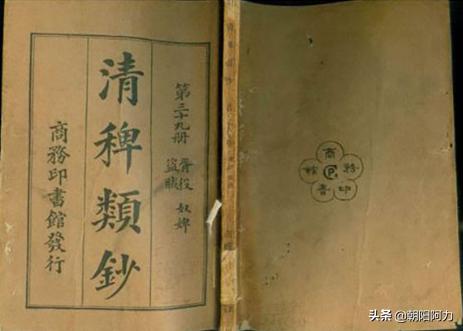 第三十九册
胥役　奴婢
盜賊
清稗類鈔
商務印書館發行
商務印書館
头条 @朝阳阿力